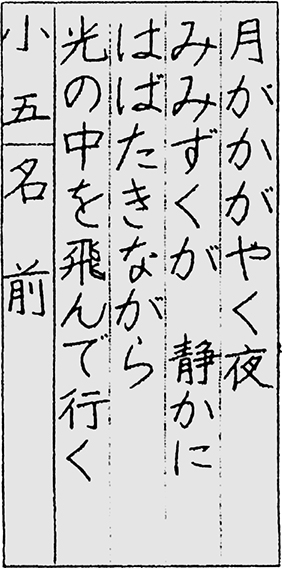 月がかがやく夜
みみずくが　静かに
はばたきながら
光の中を飛んで行く
小五　名前